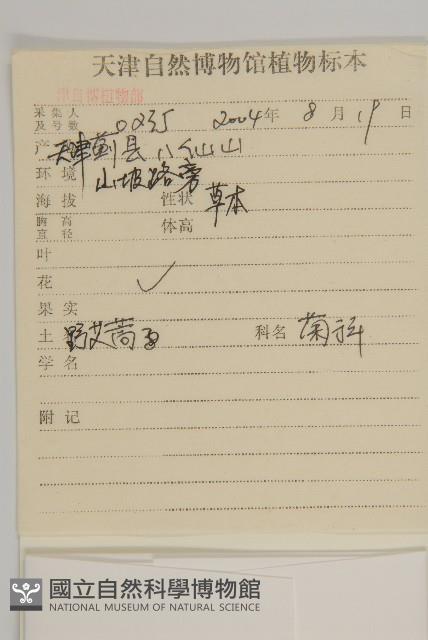 天津自然博物馆植物标本
采集人及号数 0235 2004年 8月19日
产 天津蓟县八仙山
环境 山坡路旁
海拔 性状 草本
胸高直径 体高
叶
花 ✓
果实
土 野艾蒿 科名 菊科
学名
附记
國立自然科學博物館
NATIONAL MUSEUM OF NATURAL SCIENCE